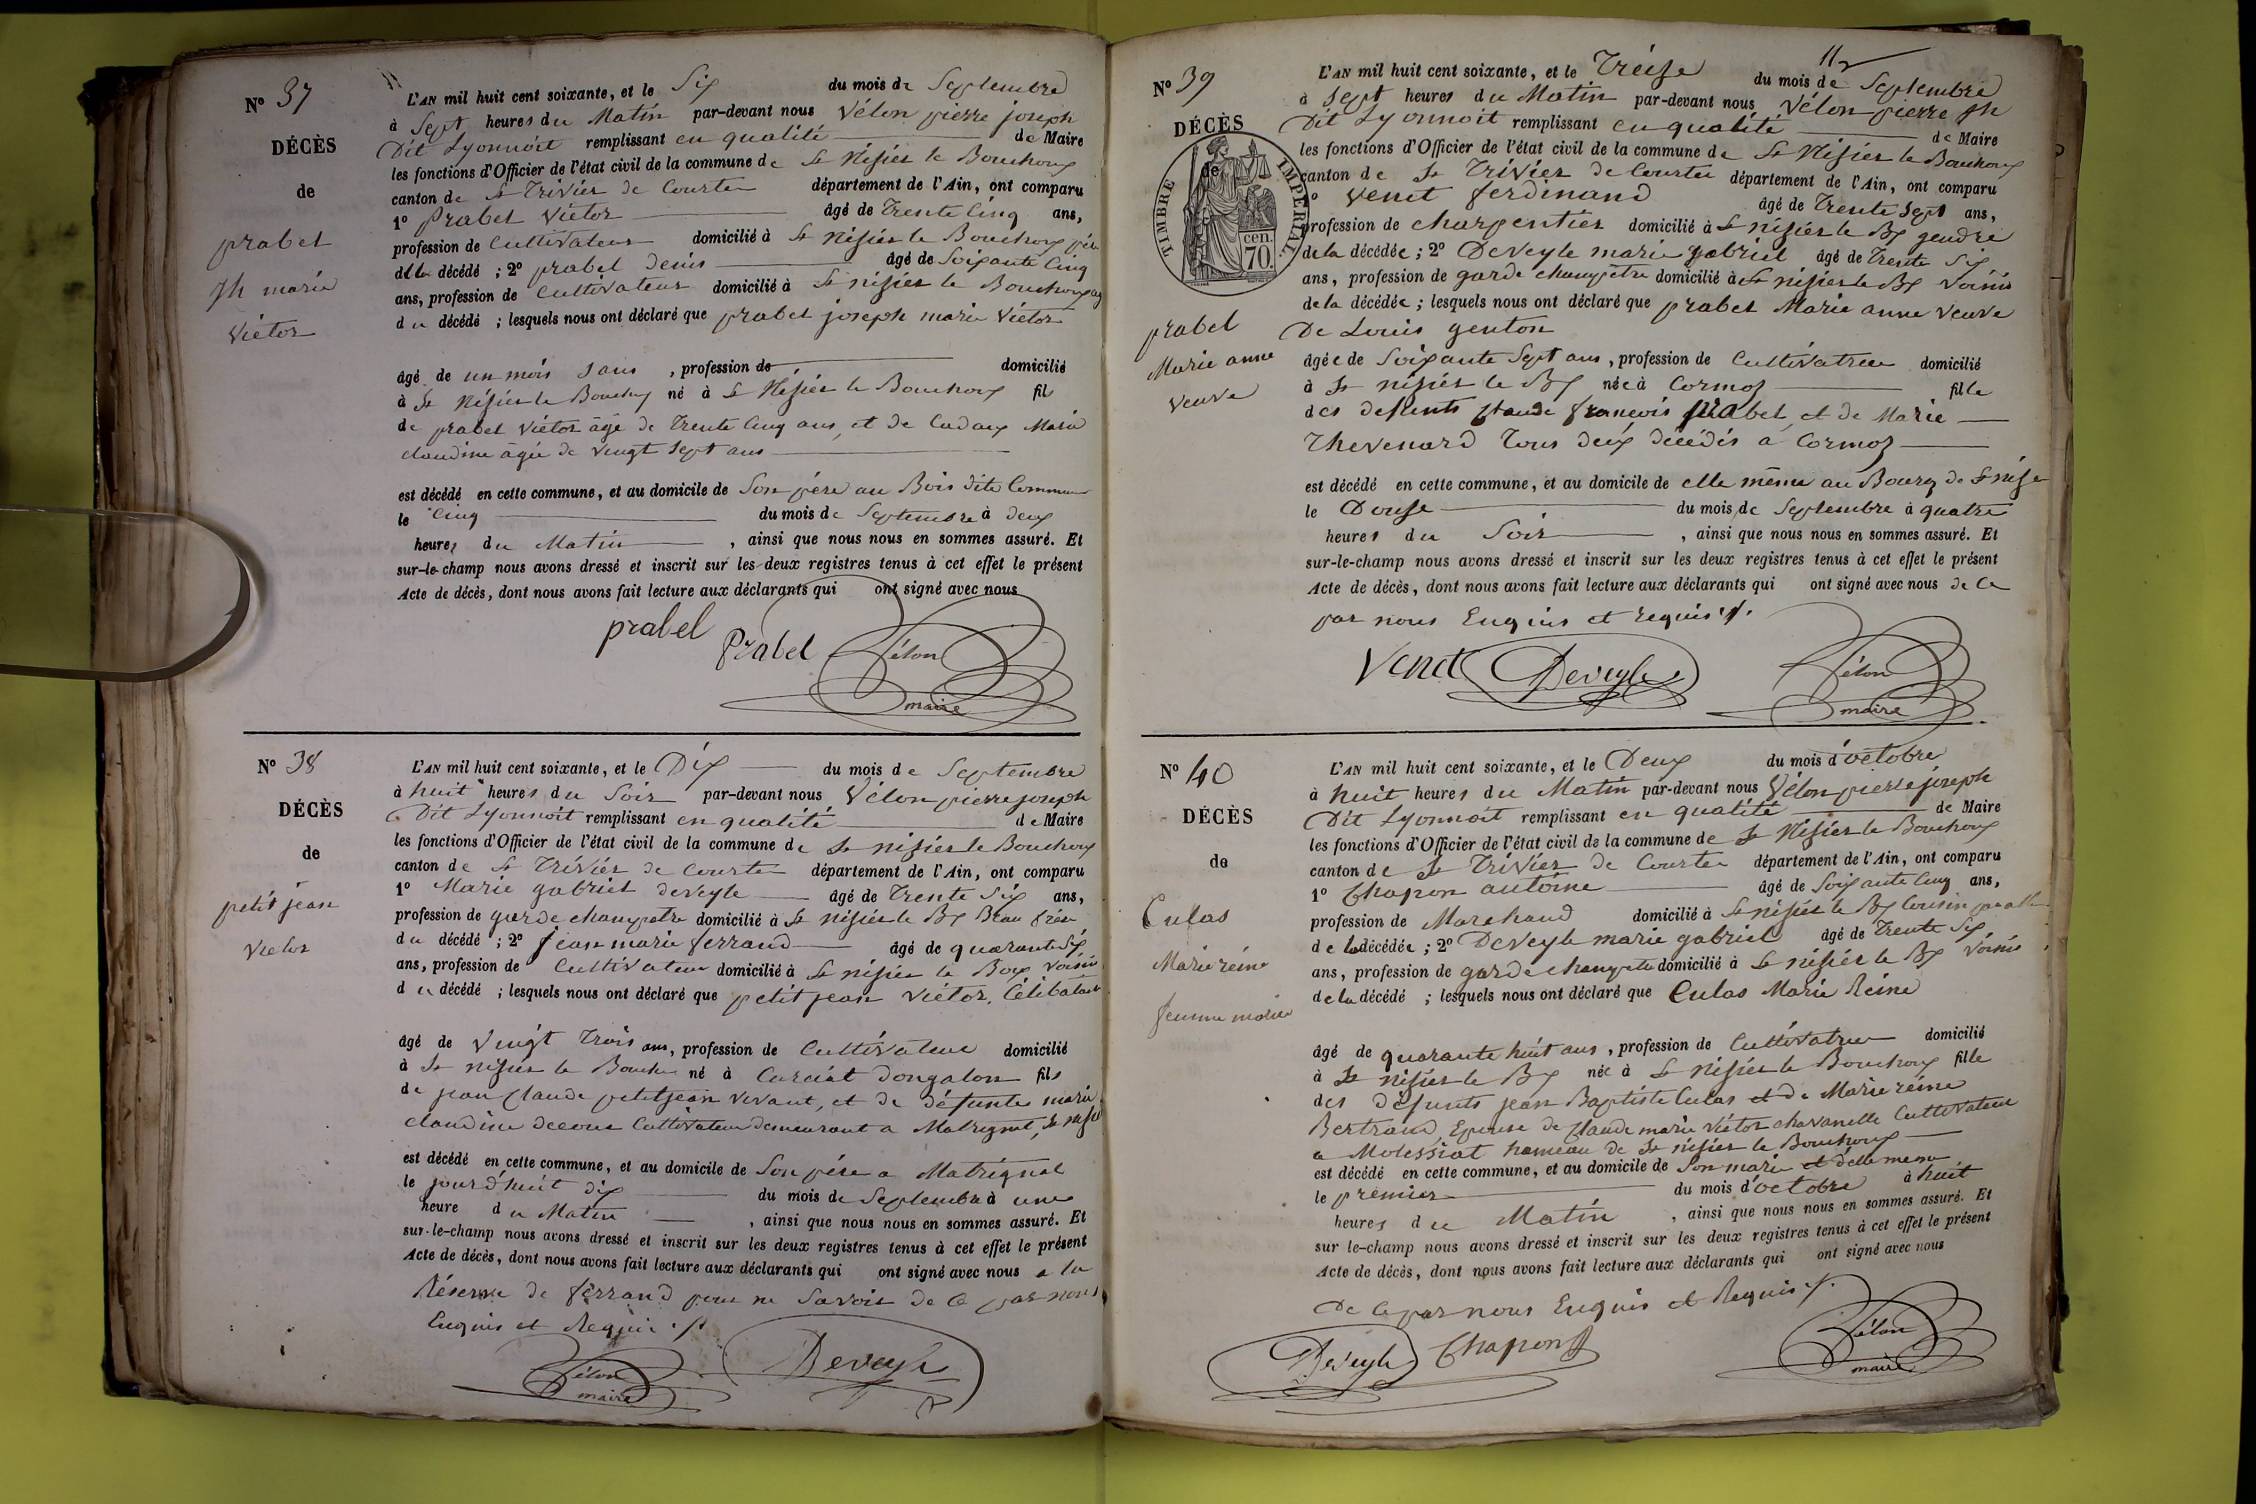 N° 37
DÉCÈS
de
prabel
jh marie
Victor
L'AN mil huit cent soixante, et le Six du mois de Septembre
à Sept heures du Matin par-devant nous Vélon pierre joseph
Dit Lyonnoit remplissant en qualité de Maire
les fonctions d'Officier de l'état civil de la commune de St Nisier le Bouchoux
canton de St Trivier de Courte département de l'Ain, ont comparu
1° Prabel Victor âgé de Trente Cinq ans,
profession de Cultivateur domicilié à St Nisier le Bouchoux père
du décédé ; 2° prabel denis âgé de Soixante Cinq
ans, profession de Cultivateur domicilié à St nisier le Bouchoux
du décédé ; lesquels nous ont déclaré que prabel joseph marie Victor
âgé de un mois sans , profession de domicilié
à St Nisier le Bouchoux né à St Nisier le Bouchoux fils
de prabel Victor âgé de Trente Cinq ans, et de Cadoux Marie
claudine âgée de Vingt Sept ans
est décédé en cette commune, et au domicile de Son père au Bois dite Commune
le Cinq du mois de Septembre à deux
heures du Matin , ainsi que nous nous en sommes assuré. Et
sur-le-champ nous avons dressé et inscrit sur les deux registres tenus à cet effet le présent
Acte de décès, dont nous avons fait lecture aux déclarants qui ont signé avec nous
prabel Prabel Vélon
maire
N° 38
DÉCÈS
de
petit jean
Victor
L'AN mil huit cent soixante, et le Dix du mois de Septembre
à huit heures du Soir par-devant nous Vélon pierre joseph
Dit Lyonnoit remplissant en qualité de Maire
les fonctions d'Officier de l'état civil de la commune de St nisier le Bouchoux
canton de St Trivier de Courte département de l'Ain, ont comparu
1° Marie gabriel deveyle âgé de Trente Six ans,
profession de garde champetre domicilié à St nisier le Bx Beau frère
du décédé ; 2° jean marie ferrand âgé de quarante Six
ans, profession de Cultivateur domicilié à St nisier le Box Voisin
du décédé ; lesquels nous ont déclaré que petit jean Victor, Célibataire
âgé de Vingt Trois ans, profession de Cultivateur domicilié
à St nisier le Bouchx né à Curciat dongalon fils
de jean claude petitjean vivant, et de défunte marie
claudine Cultivateur demeurant a Matrignat, St nisier
est décédé en cette commune, et au domicile de Son père a Matrignat
le jourd'huit dix du mois de Septembre à une
heure du Matin , ainsi que nous nous en sommes assuré. Et
sur-le-champ nous avons dressé et inscrit sur les deux registres tenus à cet effet le présent
Acte de décès, dont nous avons fait lecture aux déclarants qui ont signé avec nous a la
Réserve de ferrand pour ne Savoir de Ce par nous
Enquis et Requis ./.
Vélon Deveyle
maire
112
N° 39
DÉCÈS
de
TIMBRE IMPÉRIAL
70 cen.
prabel
Marie anne
veuve
L'AN mil huit cent soixante, et le Treize du mois de Septembre
à Sept heures du Matin par-devant nous Vélon pierre jh
Dit Lyonnoit remplissant en qualité de Maire
les fonctions d'Officier de l'état civil de la commune de St Nisier le Bouchoux
canton de St Trivier de Courte département de l'Ain, ont comparu
1° Venet ferdinand âgé de Trente Sept ans,
profession de charpentier domicilié à St nisier le Bx gendre
de la décédée ; 2° Deveyle marie gabriel âgé de Trente Six
ans, profession de garde champetre domicilié à St nisier le Bx Voisin
de la décédée ; lesquels nous ont déclaré que prabel Marie anne Veuve
De Louis genton
âgée de Soixante Sept ans, profession de Cultivatrice domicilié
à St nisier le Bx née à Cormoz fille
des défunts Claude françois prabel, et de Marie
Thevenard Tous deux décédés à Cormoz
est décédé en cette commune, et au domicile de elle même au Bourg de St nisier
le Douze du mois de Septembre à quatre
heures du Soir , ainsi que nous nous en sommes assuré. Et
sur-le-champ nous avons dressé et inscrit sur les deux registres tenus à cet effet le présent
Acte de décès, dont nous avons fait lecture aux déclarants qui ont signé avec nous de Ce
par nous Enquis et requis ./.
Venet Deveyle Vélon
maire
N° 40
DÉCÈS
de
Culas
Marie reine
femme mariée
L'AN mil huit cent soixante, et le Deux du mois d'octobre
à huit heures du Matin par-devant nous Vélon pierre joseph
Dit Lyonnoit remplissant en qualité de Maire
les fonctions d'Officier de l'état civil de la commune de St Nisier le Bouchoux
canton de St Trivier de Courte département de l'Ain, ont comparu
1° Chapon antoine âgé de Soixante Cinq ans,
profession de Marchand domicilié à St nisier le Bx Cousin
de la décédée ; 2° Deveyle marie gabriel âgé de Trente Six
ans, profession de garde champetre domicilié à St nisier le Bx Voisin
de la décédé ; lesquels nous ont déclaré que Culas Marie Reine
âgé de quarante huit ans, profession de Cultivatrice domicilié
à St nisier le Bx née à St nisier le Bouchoux fille
des défunts jean Baptiste Culas et de Marie reine
Bertrand, Epouse de Claude marie Victor chavanelle Cultivateur
a Molessiat hameau de St nisier le Bouchoux
est décédé en cette commune, et au domicile de Son mari et d'elle meme
le premier du mois d'octobre à huit
heures du Matin , ainsi que nous nous en sommes assuré. Et
sur le-champ nous avons dressé et inscrit sur les deux registres tenus à cet effet le présent
Acte de décès, dont nous avons fait lecture aux déclarants qui ont signé avec nous
De Ce par nous Enquis et Requis ./.
Deveyle Chapon Vélon
maire